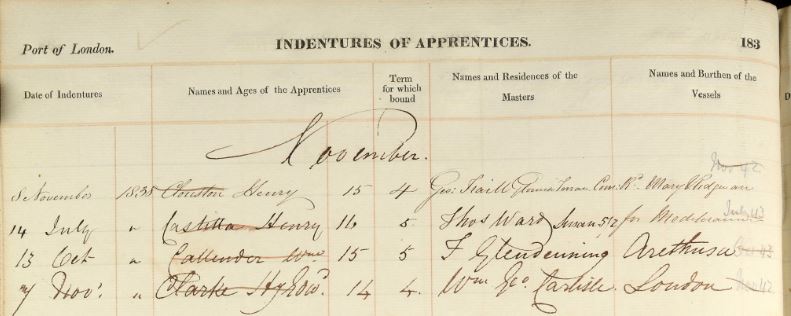 Port of London.
INDENTURES OF APPRENTICES.
183
Date of Indentures
Names and Ages of the Apprentices
Term for which bound
Names and Residences of the Masters
Names and Burthen of the Vessels
November.
Nov 42
8 November 1838 Clouston Henry 15 4 Geo: Traill Mary Ridgway
14 July " Castilla Henry 16 5 Thos Ward for July 43
13 Oct " Callender Wm 15 5 F Glendenning Arethusa Oct 43
7 Novr. " Clarke Hy Edwd. 14 4. Wm Geo. Carlisle. London Nov 42